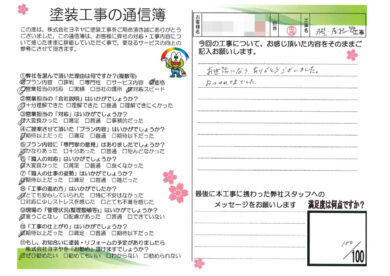 塗装工事の通信簿
この度は、株式会社ヨネヤに塗装工事をご用命頂き誠にありがとう
ございました。この通信は、お客様に弊社の対応・工事内容につい
て感じたままに評価していただく事で、更なるサービスの向上の
参考にさせて頂きます。
①弊社を選んで頂いた理由は何ですか?(複数可)
プラン内容 □評判 □専門性 □サービス内容 価格
営業担当の対応 □実績 □会社の場所 対応スピード
②営業担当の「会社説明」はいかがでしょうか?
十分理解できた □理解できた □普通 □理解できにくかった
③営業担当の「対応」はいかがでしょうか?
大変良かった □満足 □普通 □事務的だった
④ご提案させて頂いた「プラン内容」はいかがでしょうか?
期待以上だった □満足 □普通 □期待以下だった
⑤プラン内容に「専門家の意見」はありましたでしょうか?
かなりあった □十分あった □普通 □殆んどなかった
⑥「職人の対応」はいかがでしょうか?
大変良かった □満足 □普通 □良くなかった
⑦「職人の仕事の姿勢」はいかがでしょうか?
期待以上だった □満足 □普通 □期待以下だった
⑧「工事の進め方」はいかがでしたか?
とても安心していられた □特に不安はなかった
□対応は少しストレスを感じた □とても不義を感じた
⑨現場の「管理状況(整理整頓等)」はいかがでしょうか?
言うことなし □配慮があった □普通 □できていない
⑩「工事の仕上がり」はいかがでしょうか?
期待以上だった □満足 □普通 □期待以下だった
⑪もし、お知合いに塗装・リフォームの予定がありましたら
株式会社ヨネヤを「お勧め」頂けますでしょうか?
ぜひ勧めたい □勧めてもいい □わからない □勧められない
お客様名
工事
今回の工事について、お感じ頂いた内容をそのままご
記入お願いします。
お世話になり ありがとうございました。
最後に本工事に携わった弊社スタッフへの
メッセージをお願いします
満足度は何点ですか?
100
/100